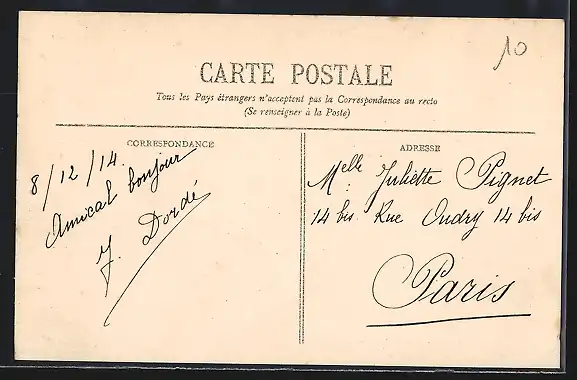 10
CARTE POSTALE
Tous les Pays étrangers n'acceptent pas la Correspondance au recto
(Se renseigner à la Poste)
CORRESPONDANCE
8/12/14.
Amical bonjour
J. Dordé
ADRESSE
Melle Juliette Pignet
14 bis Rue Oudry 14 bis
Paris